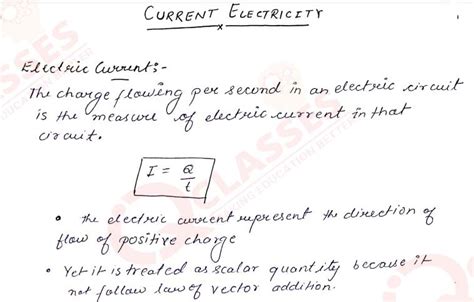 CURRENT ELECTRICITY
Electric Current:-
The charge flowing per second in an electric circuit
is the measure of electric current in that
circuit.
I = Q/t
• the electric current represent the direction of
flow of positive charge
• Yet it is treated as scalar quantity because it
not follow law of vector addition.